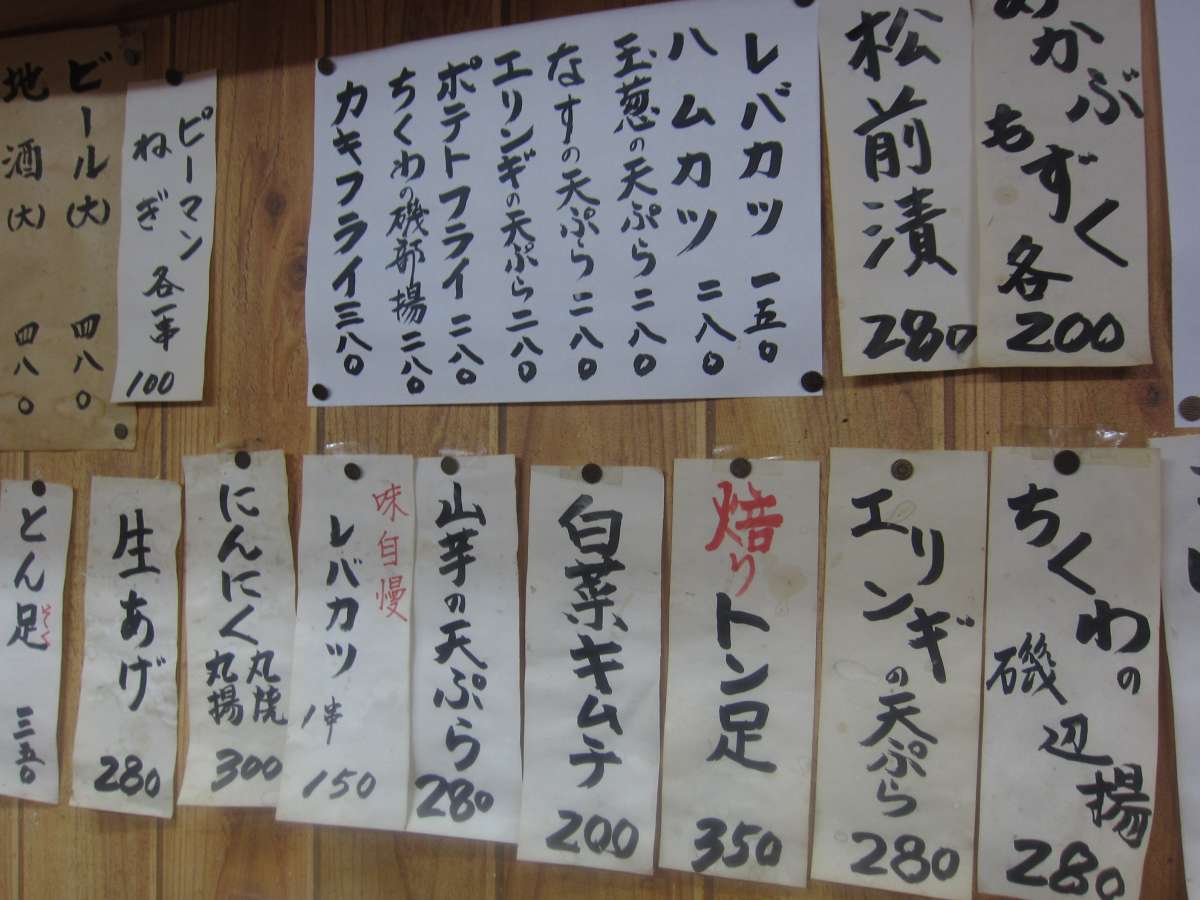 めかぶ
もずく
各
200
松前漬
280
レバカツ 一五〇
ハムカツ 二八〇
玉葱の天ぷら 二八〇
なすの天ぷら 二八〇
エリンギの天ぷら 二八〇
ポテトフライ 二八〇
ちくわの磯部揚 二八〇
カキフライ 三八〇
ピーマン
ねぎ
各一串
100
ビール(大) 四八〇
地酒(大) 四八〇
ちくわの
磯辺揚
280
エリンギの天ぷら
280
焙りトン足
350
白菜キムチ
200
山芋の天ぷら
280
味自慢
レバカツ
1串
150
にんにく
丸焼
丸揚
300
生あげ
280
とん足
三五〇